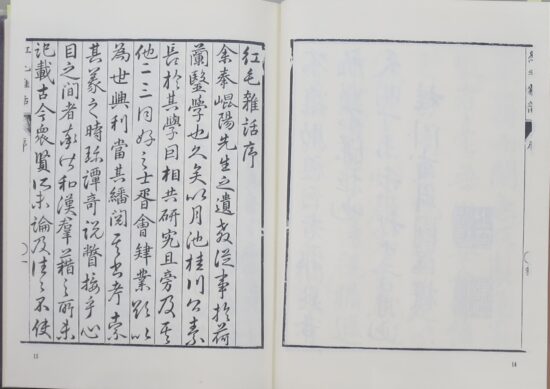 紅毛雜話序
余奉崐陽先生之遺教從事於荷
蘭醫學也久矣以月池桂川公素
長於其學因相共研究且旁及其
他一二同好之士胥會肄業以
為世興利當其繙閲其書考索
其義之時珍譚奇説瞥接乎心
目之間者率皆和漢羣藉之所未
記載古今衆賢所未論及往々不使
紅毛雜話 序
15